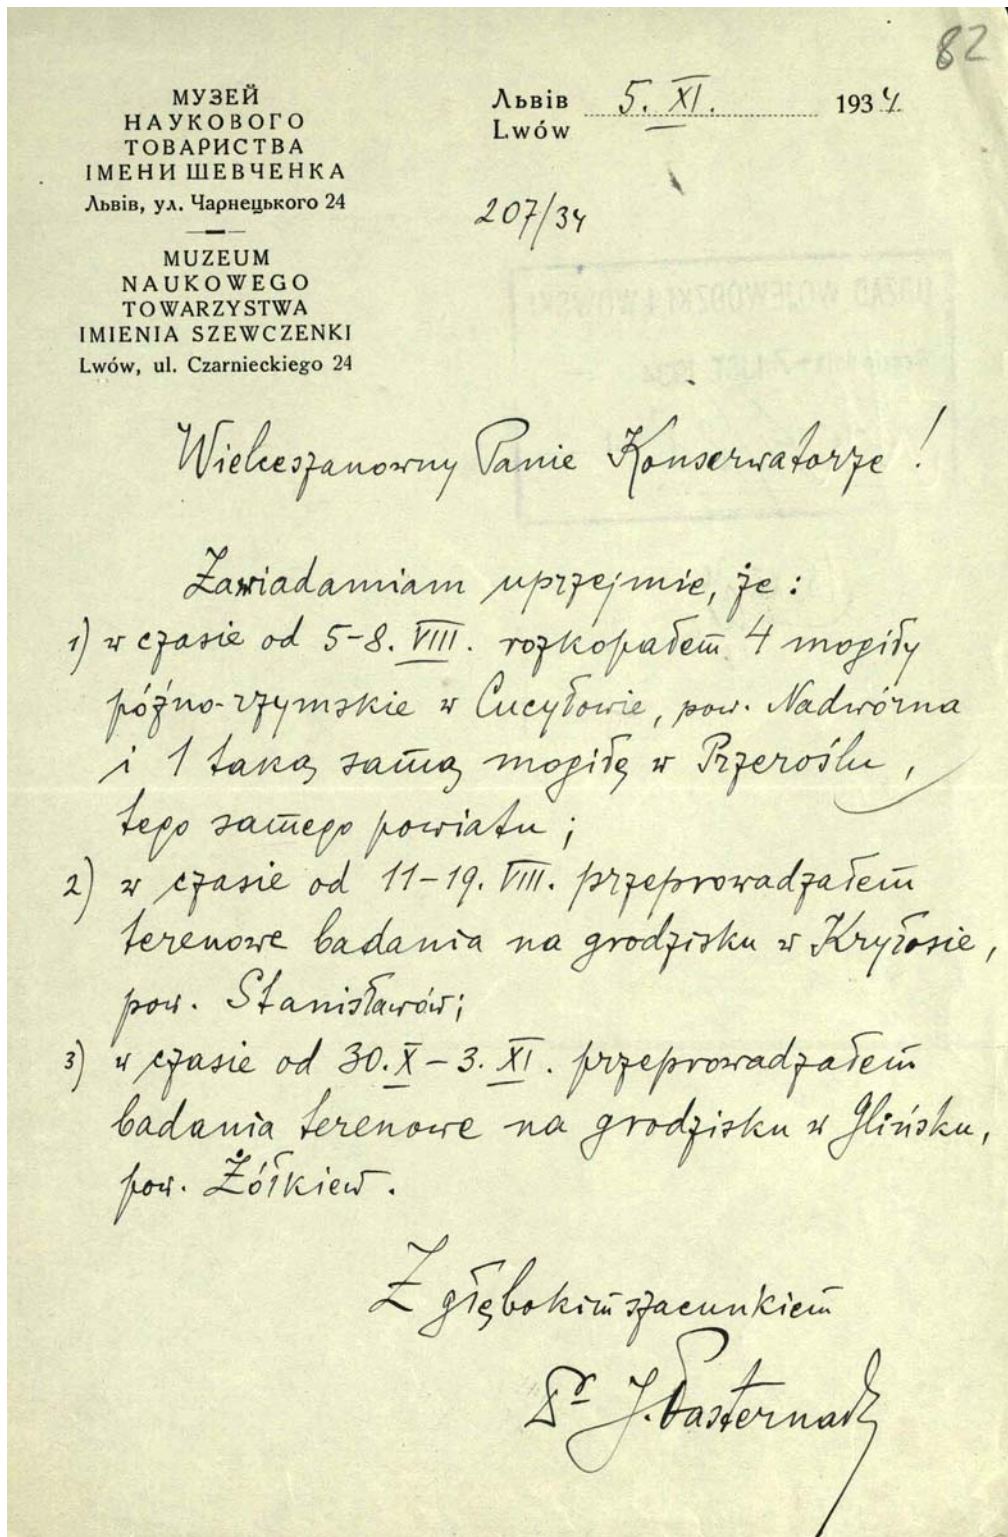 82
МУЗЕЙ
НАУКОВОГО
ТОВАРИСТВА
ІМЕНИ ШЕВЧЕНКА
Львів, ул. Чарнецького 24
MUZEUM
NAUKOWEGO
TOWARZYSTWA
IMIENIA SZEWCZENKI
Lwów, ul. Czarnieckiego 24
Львів 5. XI. 1934.
Lwów
207/34
Wielceszanowny Panie Konserwatorze!
Zawiadamiam uprzejmie, że:
1) w czasie od 5-8. VIII. rozkopałem 4 mogiły
późno-rzymskie w Cucyłowie, pow. Nadwórna
i 1 taką samą mogiłę w Przeroślu,
tego samego powiatu;
2) w czasie od 11-19. VIII. przeprowadzałem
terenowe badania na grodzisku w Kryłosie,
pow. Stanisławów;
3) w czasie od 30. X - 3. XI. przeprowadzałem
badania terenowe na grodzisku w Glińsku,
pow. Żółkiew.
Z głębokim szacunkiem
Dr J. Pasternak